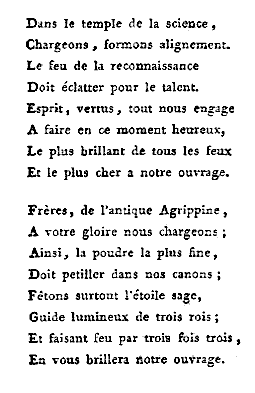 Dans le temple de la science,
Chargeons, formons alignement.
Le feu de la reconnaissance
Doit éclatter pour le talent.
Esprit, vertus, tout nous engage
A faire en ce moment heureux,
Le plus brillant de tous les feux
Et le plus cher a notre ouvrage.
Frères, de l'antique Agrippine,
A votre gloire nous chargeons;
Ainsi, la poudre la plus fine,
Doit petiller dans nos canons;
Fêtons surtout l'étoile sage,
Guide lumineux de trois rois;
Et faisant feu par trois fois trois,
En vous brillera notre ouvrage.